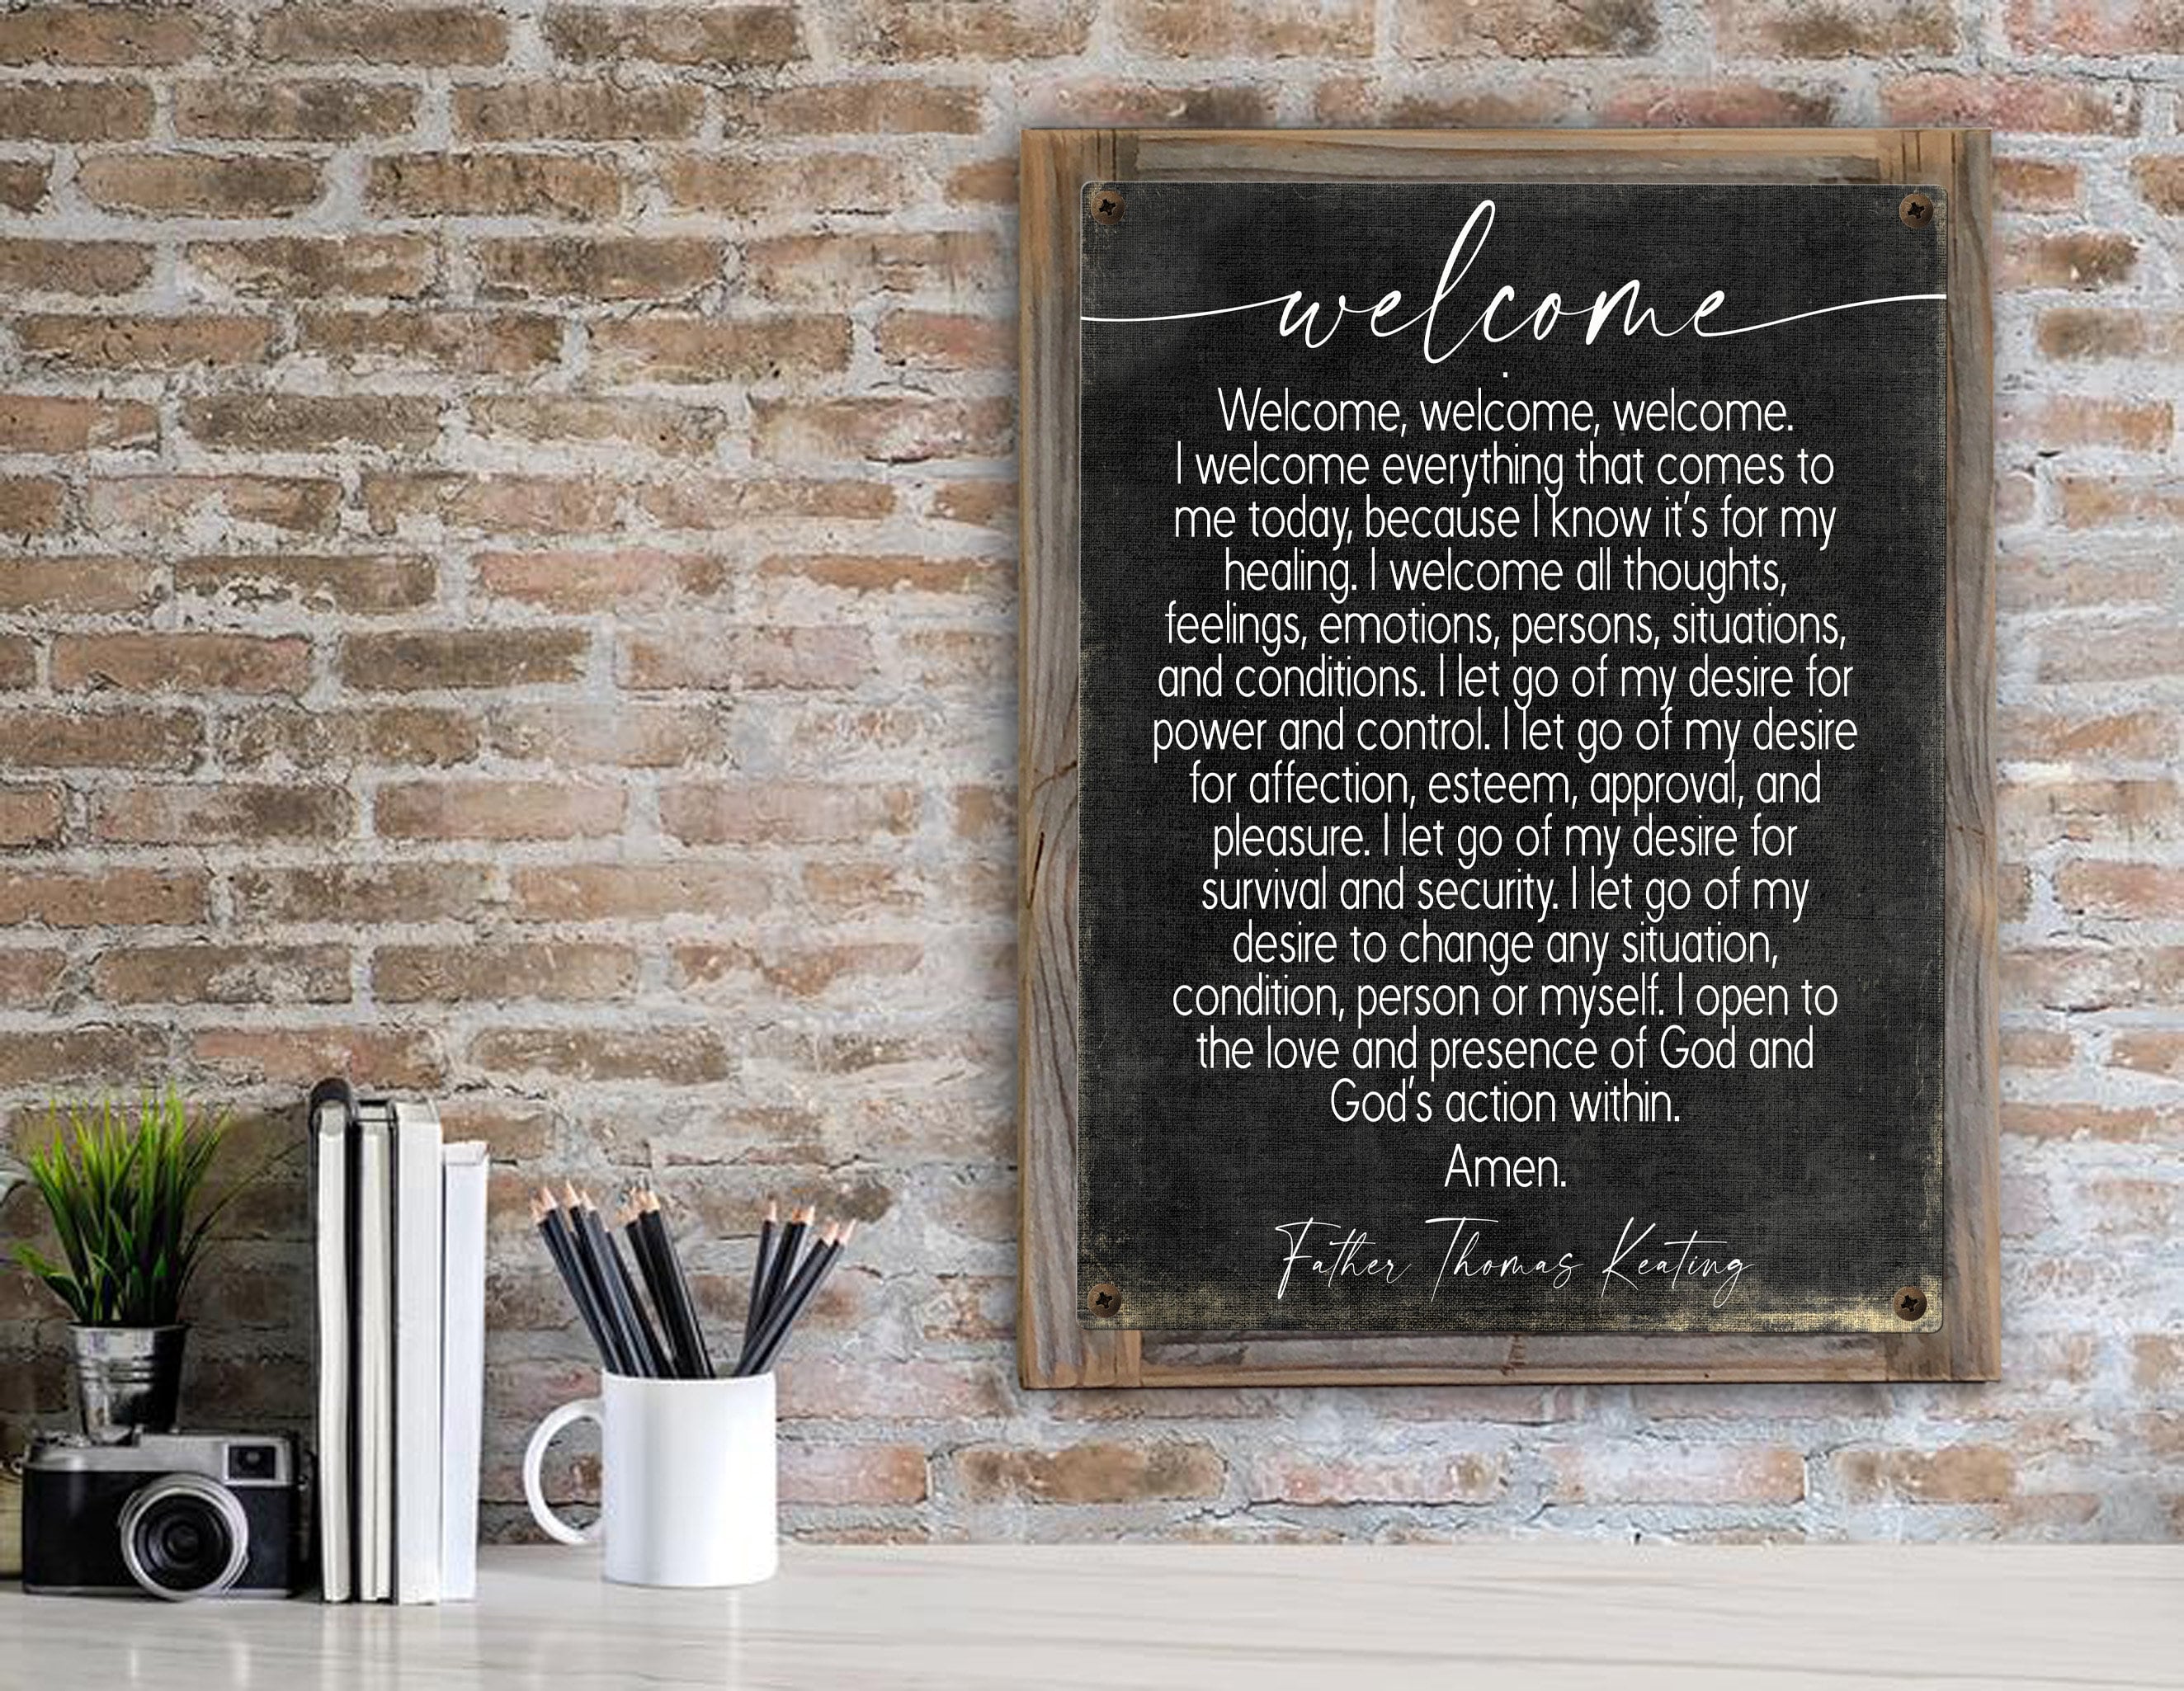 welcome
.
Welcome, welcome, welcome.
I welcome everything that comes to
me today, because I know it's for my
healing. I welcome all thoughts,
feelings, emotions, persons, situations,
and conditions. I let go of my desire for
power and control. I let go of my desire
for affection, esteem, approval, and
pleasure. I let go of my desire for
survival and security. I let go of my
desire to change any situation,
condition, person or myself. I open to
the love and presence of God and
God's action within.
Amen.
Father Thomas Keating